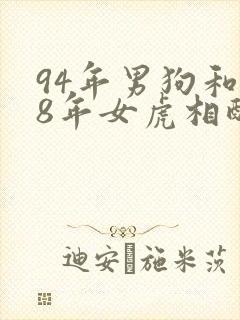 94年男狗和
8年女虎相配
迪安 施米茨